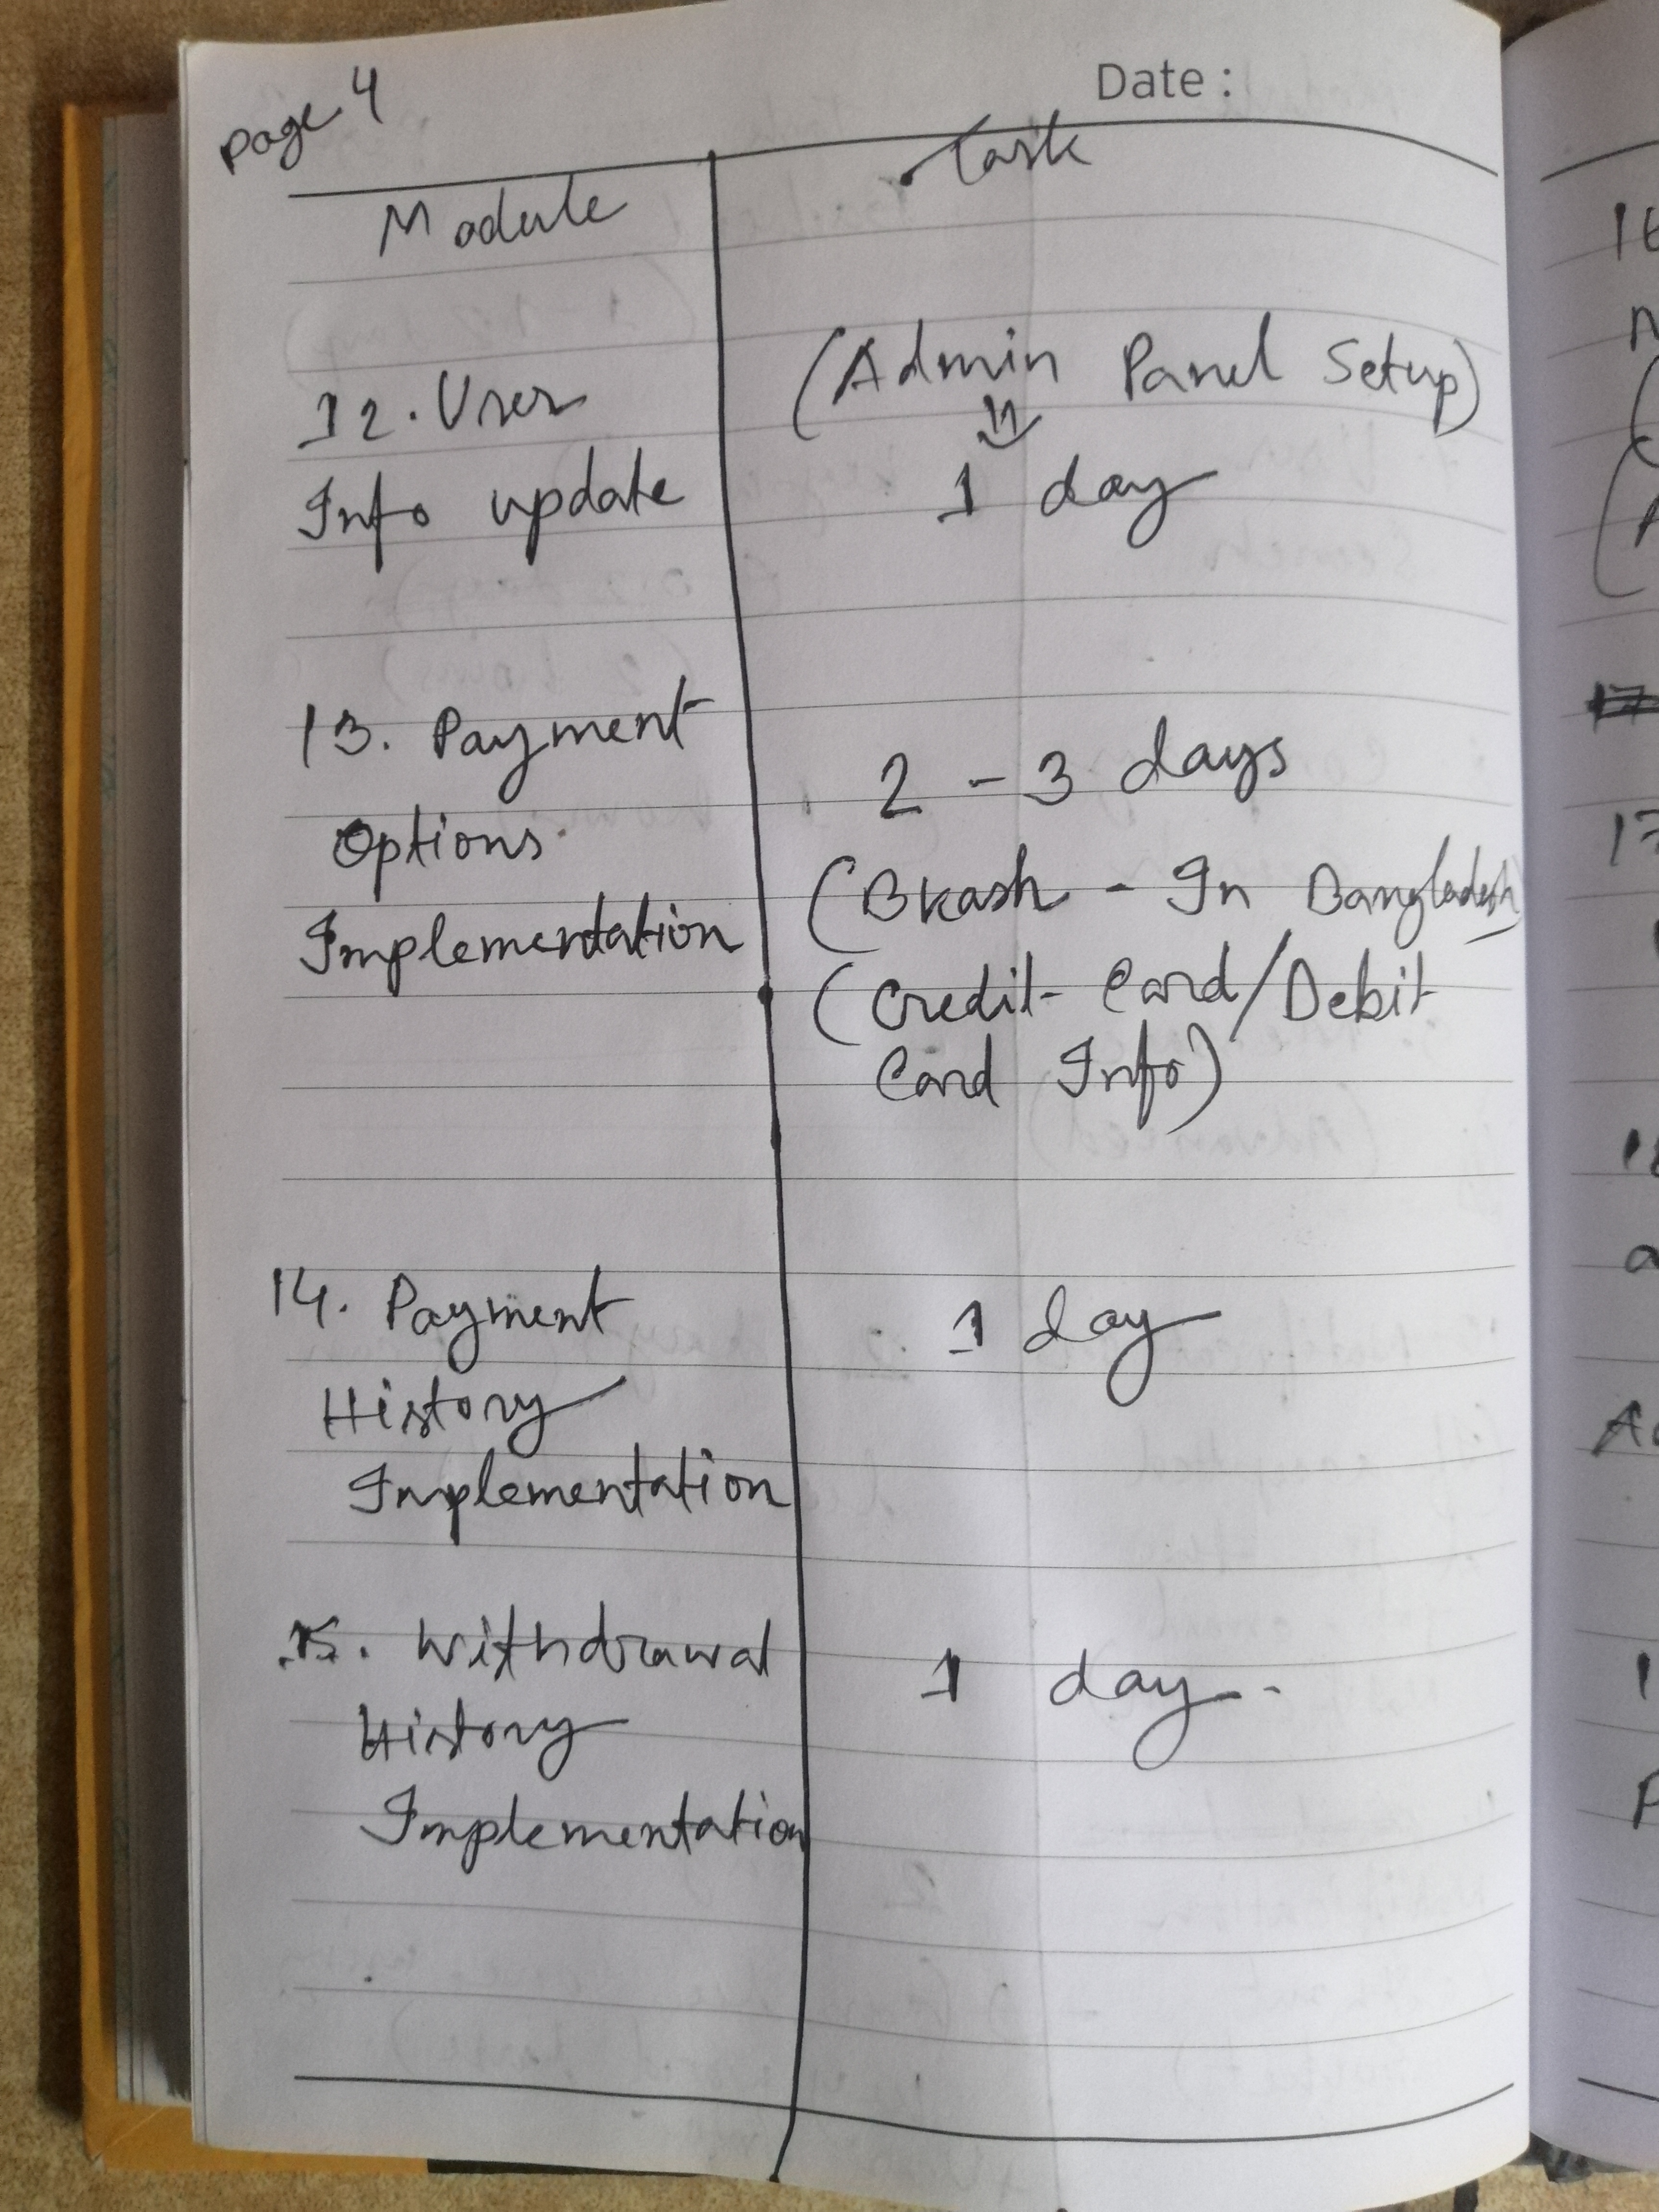 page 4
Date :
Module
Task
12. User
Info update
(Admin Panel Setup)
1 day
13. Payment
Options
Implementation
2 - 3 days
(Bkash - In Bangladesh)
(Credit Card/Debit
Card Info)
14. Payment
History
Implementation
1 day
15. Withdrawal
History
Implementation
1 day.
16
17
17